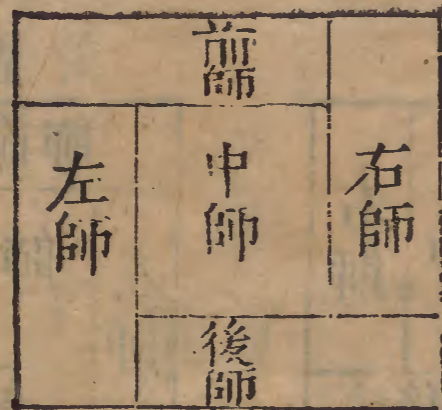 前師
右師
中師
左師
後師